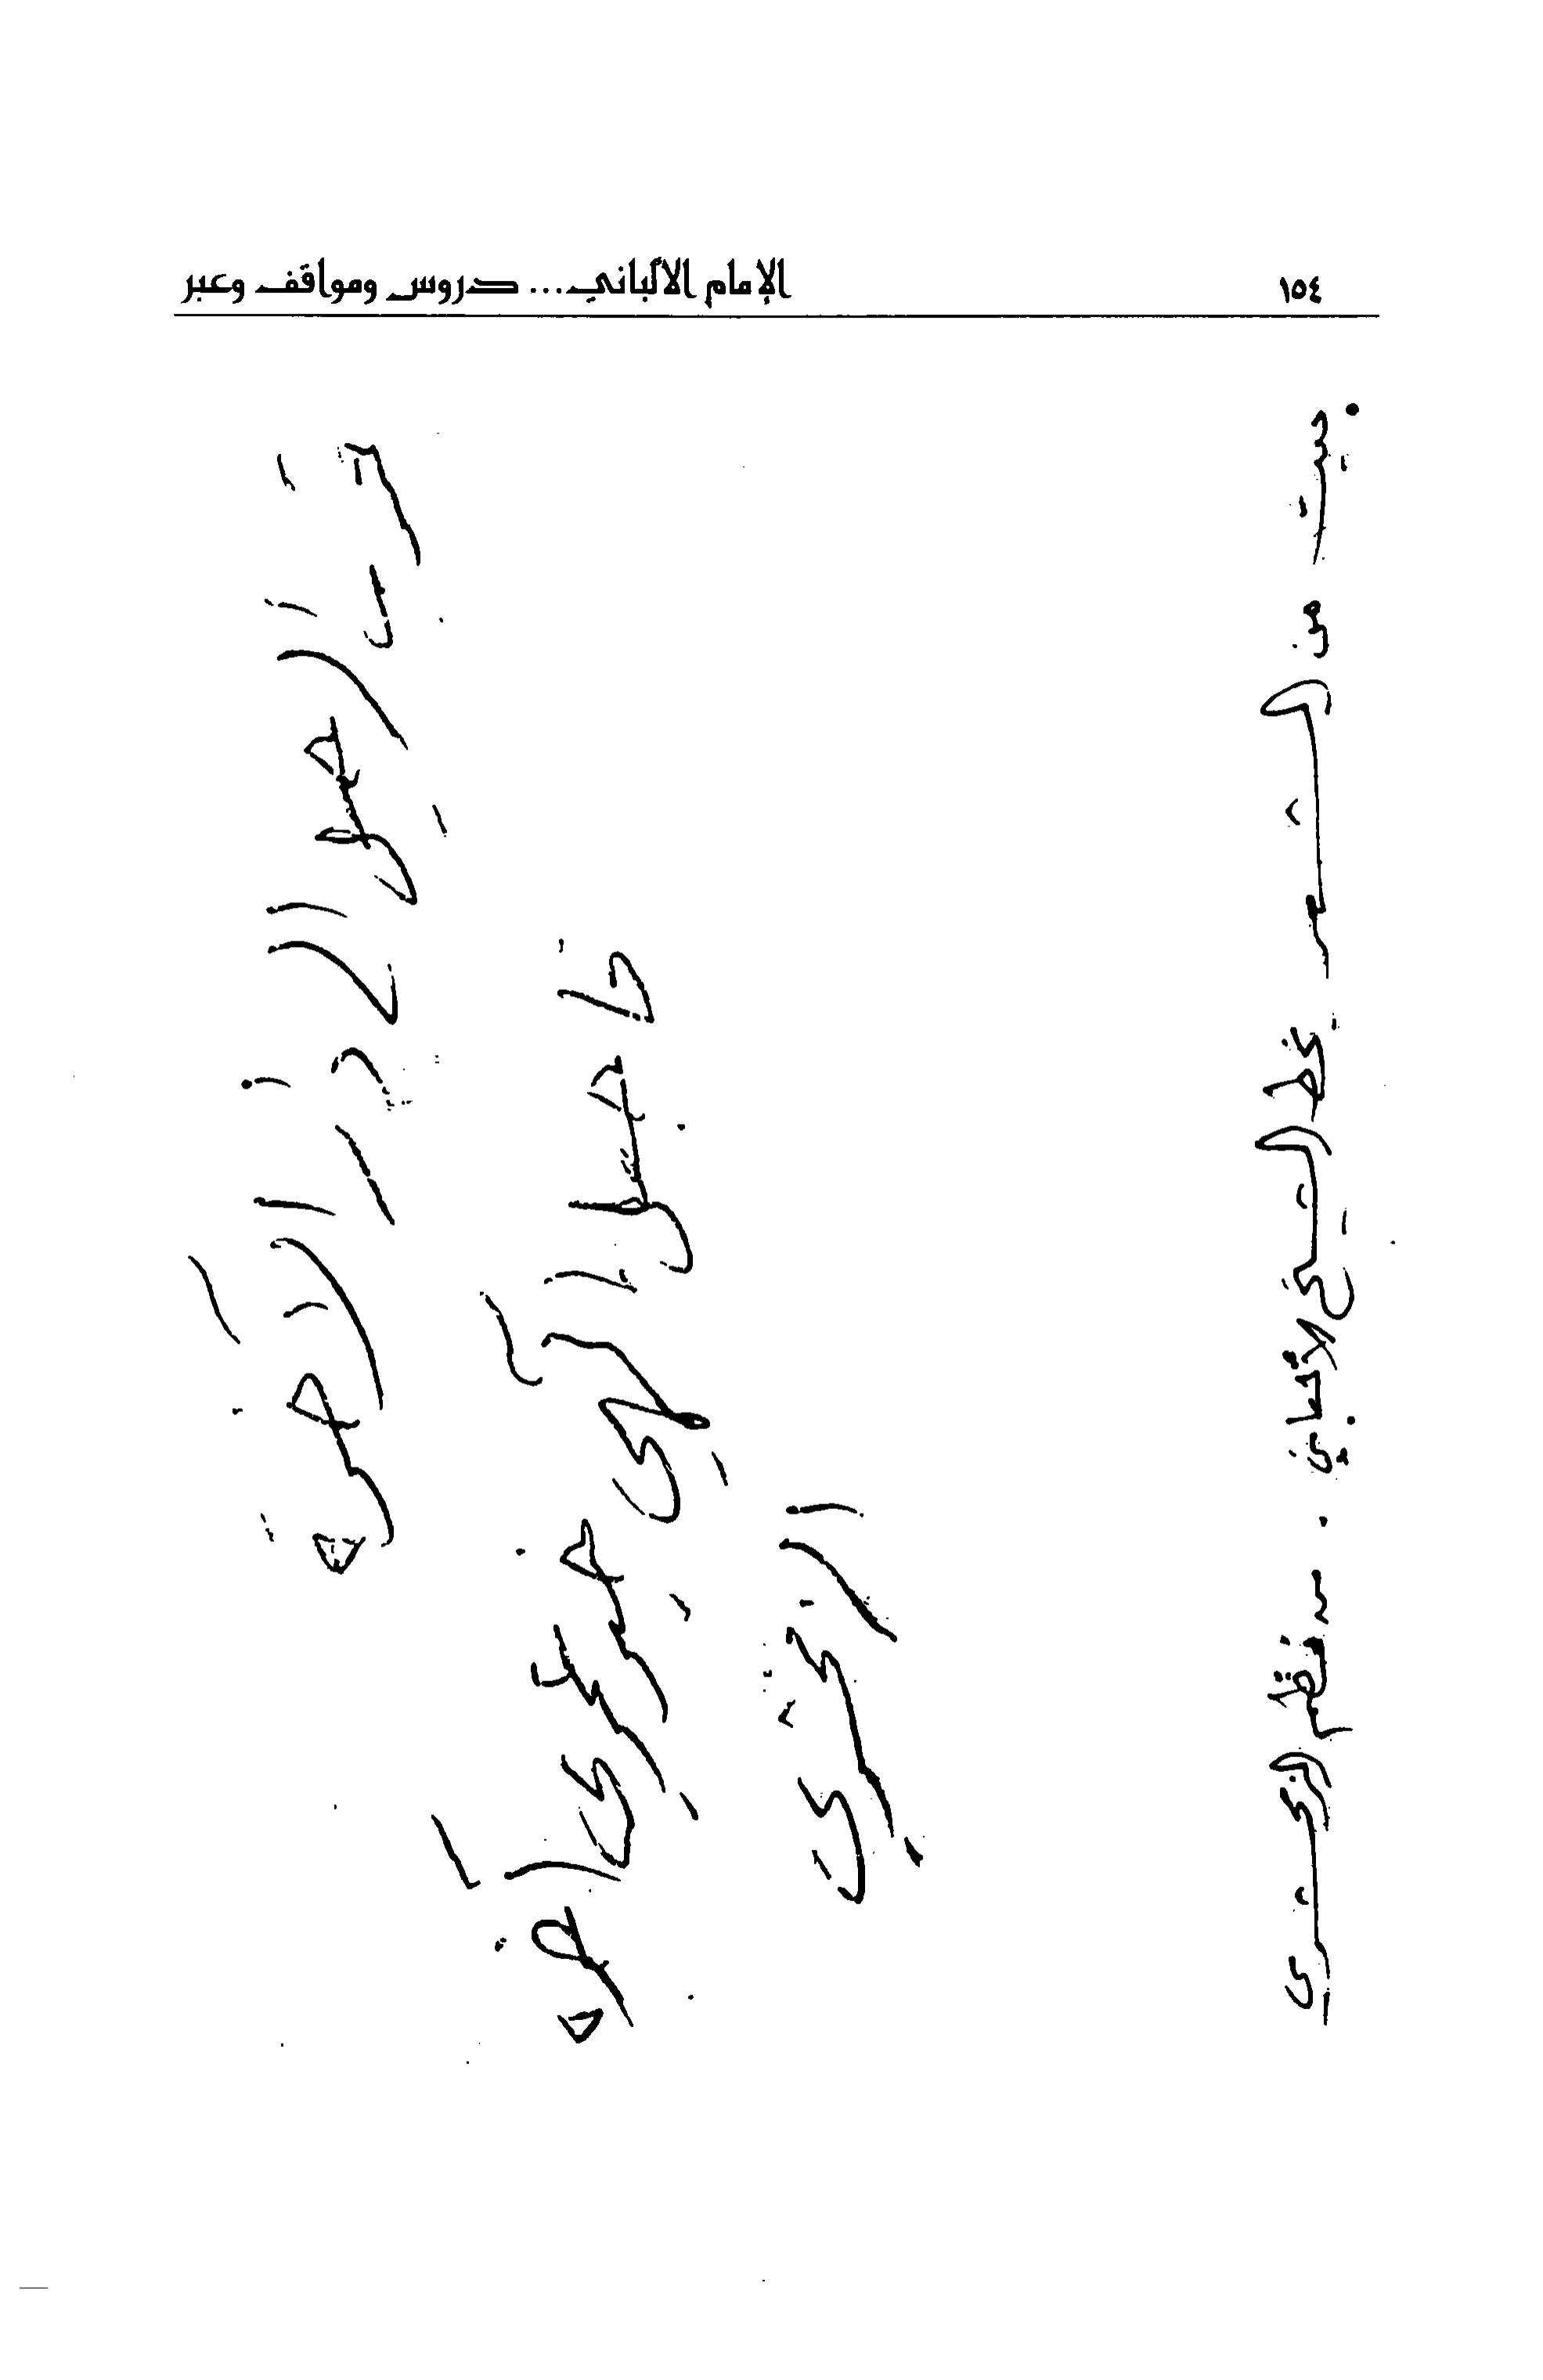 ١٥٤ الإمام الألباني... دروس ومواقف وعبر
قرب الرحيل إلى ديار الآخرة
فاجعل إلهي خير عمري آخره
الزمخشري
بيت من الشعر بخط الشيخ الألباني . من نظم الزمخشري